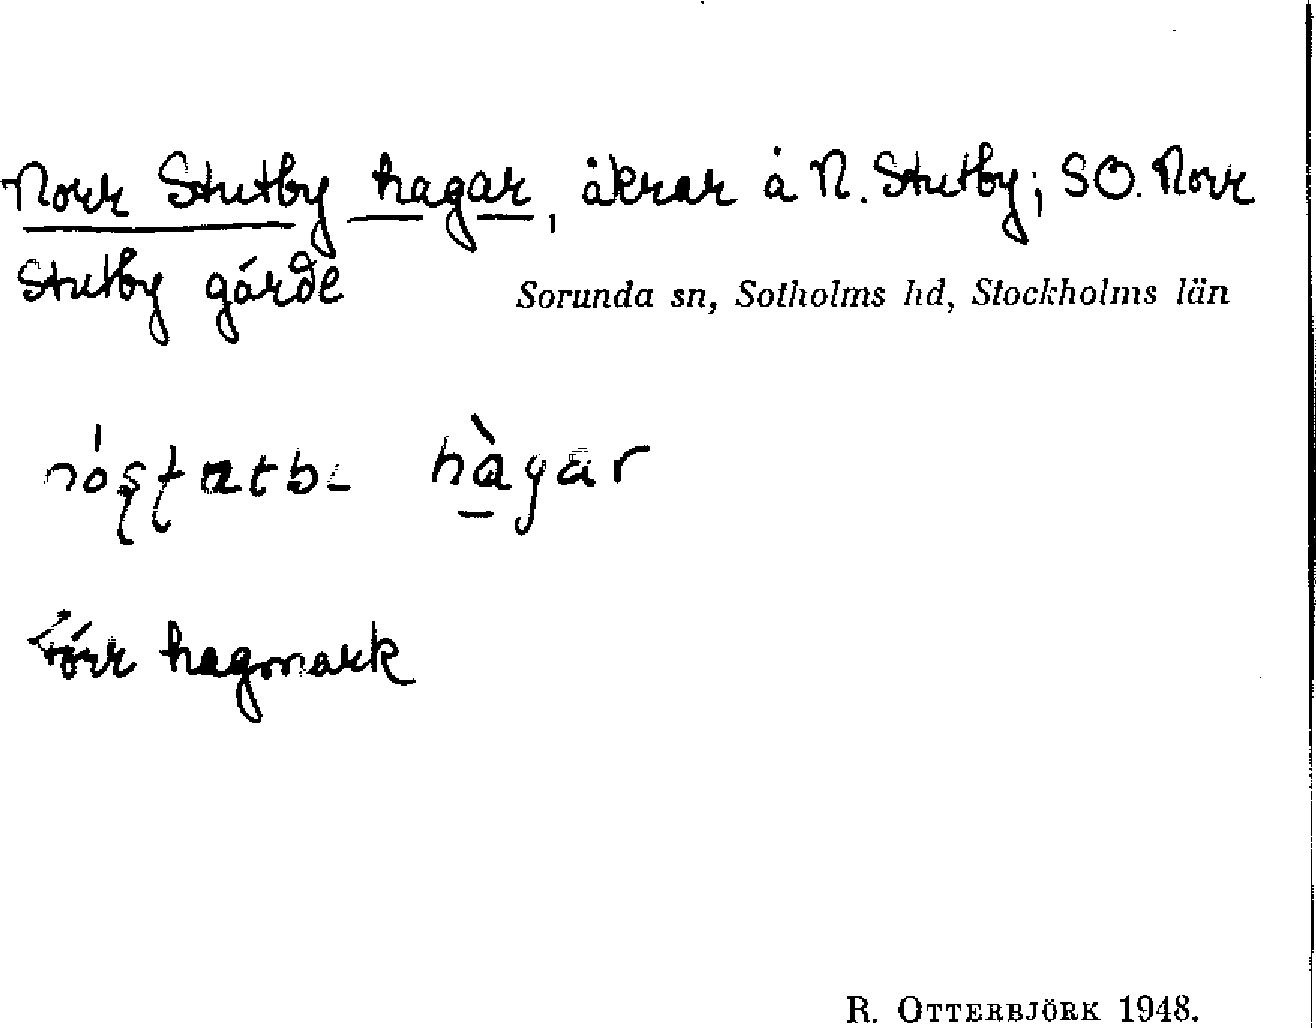 Norr Stutby hagar, åkrar å N. Stutby; SO. Norr
Stutby gärde
Sorunda sn, Sotholms hd, Stockholms län
hàgar
Förr hagmark
R. OTTERBJÖRK 1948.